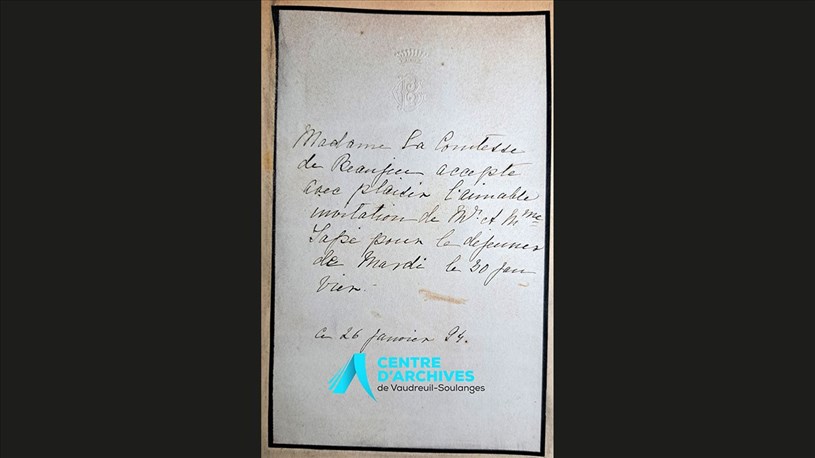 Madame La Comtesse
de Beaujeu accepte
avec plaisir l'aimable
invitation de Mr. et Mme
pour le dejeuner
de Mardi le 30 Jan
vier.
ce 26 janvier 94.
CENTRE
D'ARCHIVES
de Vaudreuil-Soulanges